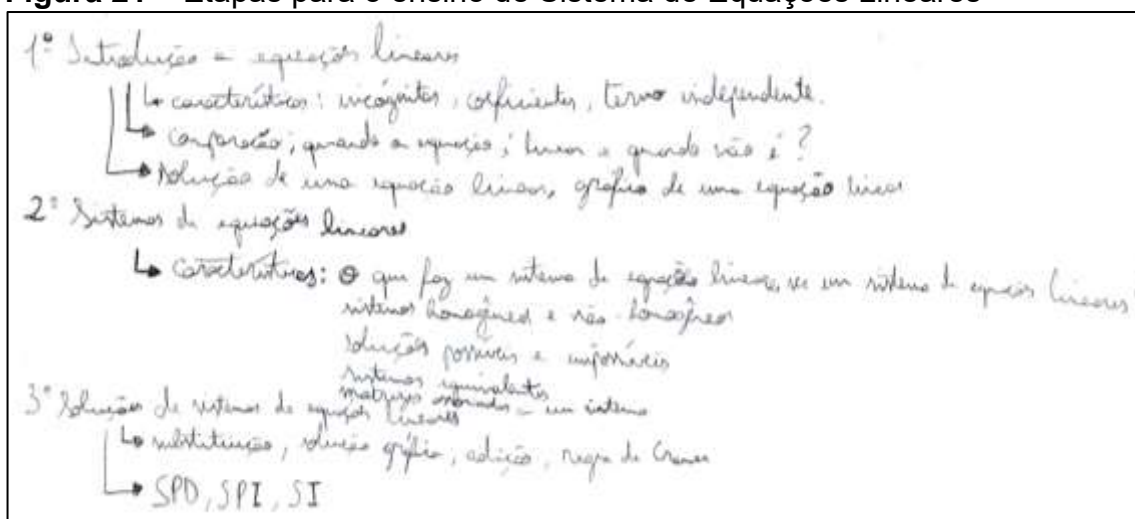 Figura 21 – Etapas para o ensino de Sistema de Equações Lineares
1º Introdução a equações lineares
características: incógnitas, coeficientes, termo independente.
comparação; quando a equação é linear e quando não é?
solução de uma equação linear, gráfico de uma equação linear
2º Sistemas de equações lineares
características: O que faz um sistema de equações lineares, ser um sistema de equações lineares
sistemas homogêneos e não-homogêneos
soluções possíveis e impossíveis
sistemas equivalentes
matrizes associadas a um sistema
3º Solução de sistemas de equações lineares
substituição, solução gráfica, adição, regra de Cramer
SPD, SPI, SI